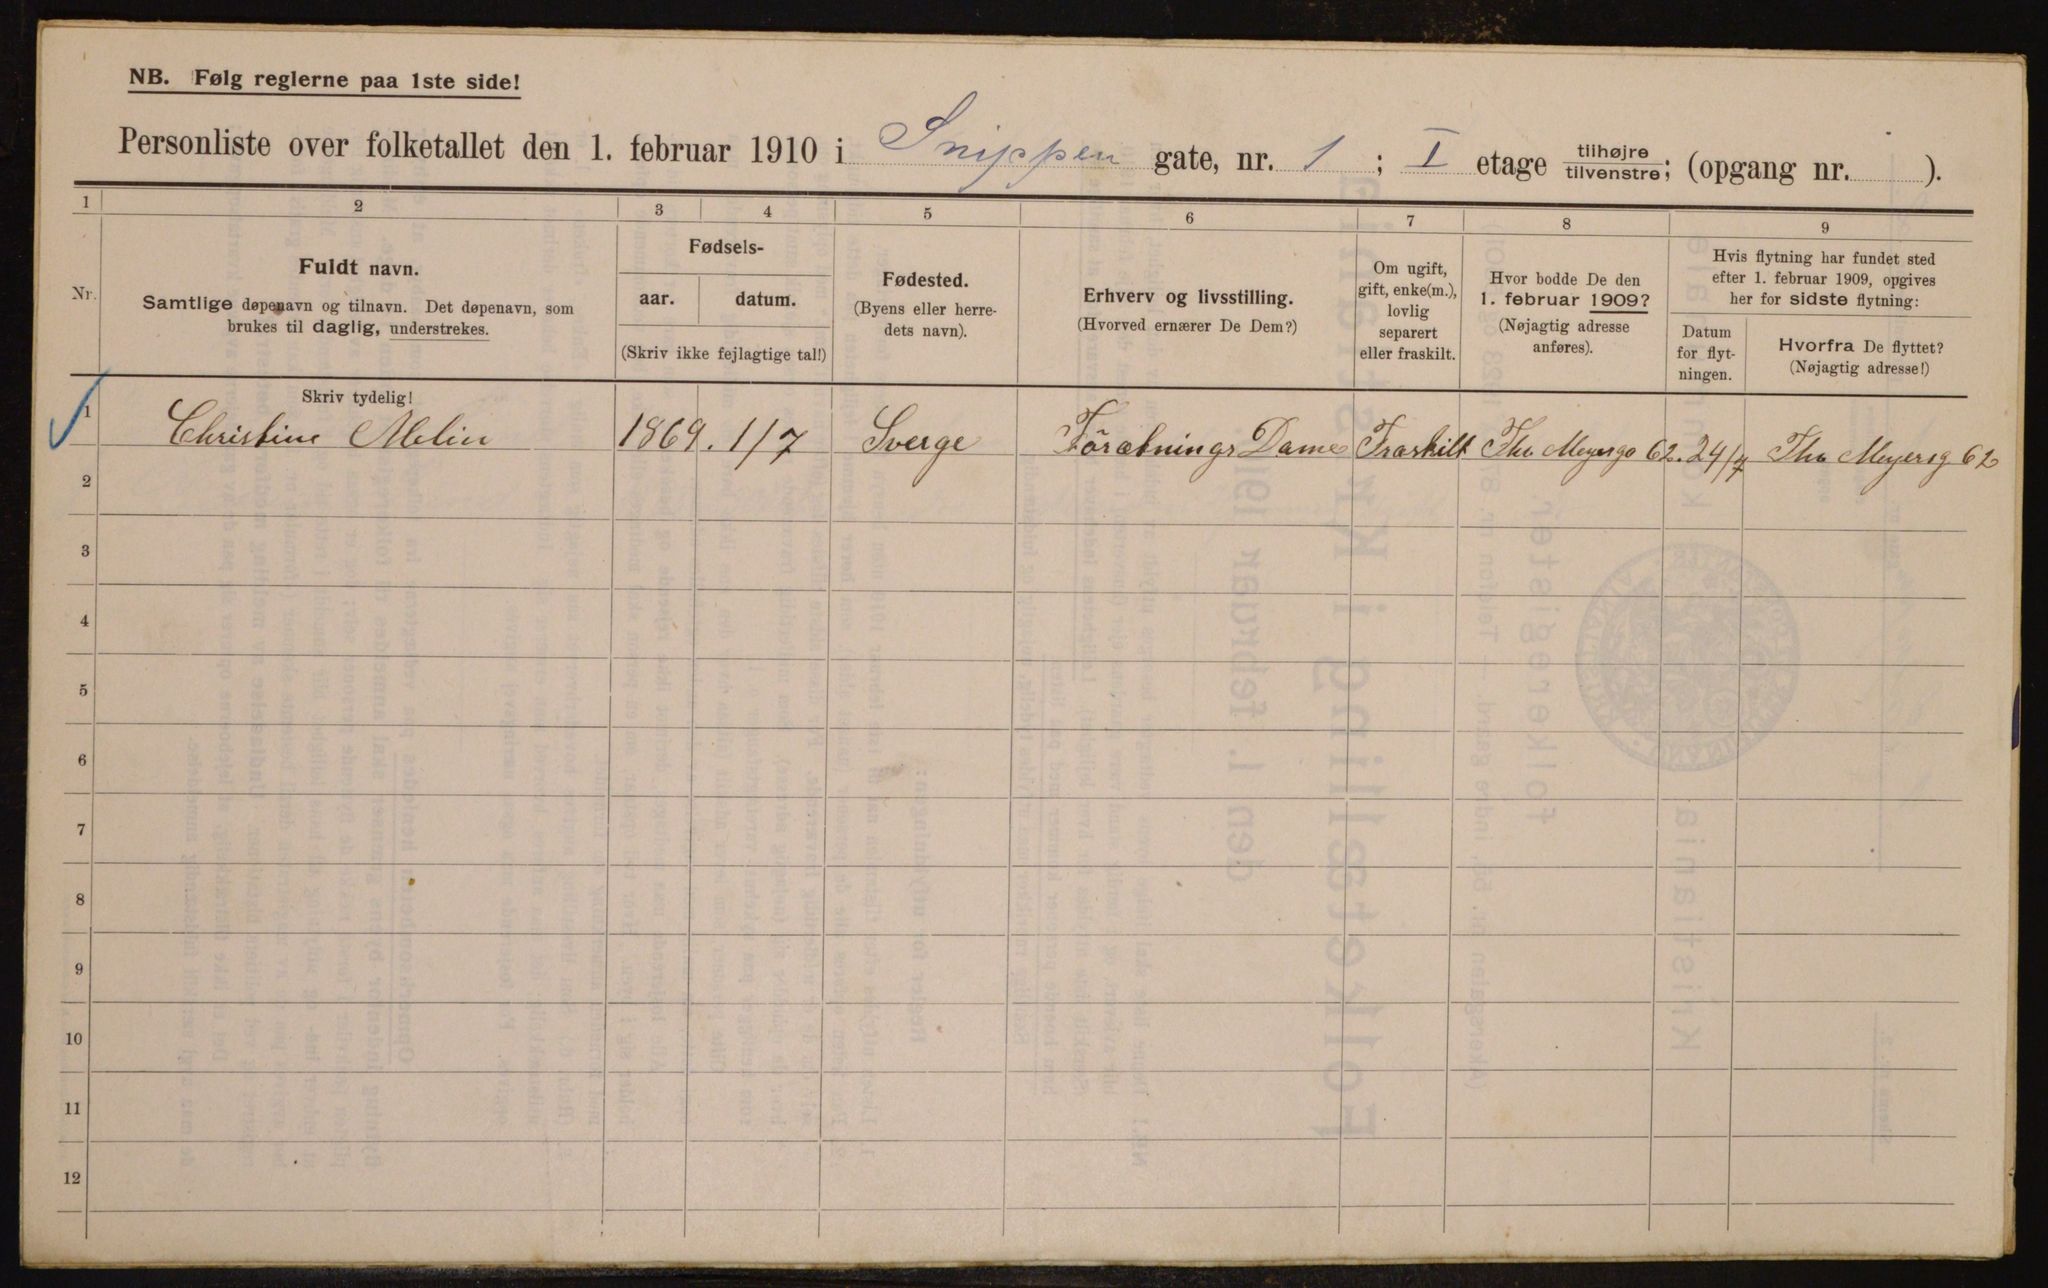 NB. Følg reglerne paa 1ste side!
Personliste over folketallet den 1. februar 1910 i Snippen gate, nr. 1 ; I etage tilhøjre tilvenstre; (opgang nr. ).
1 2 3 4 5 6 7 8 9
Nr.
Fuldt navn.
Samtlige døpenavn og tilnavn. Det døpenavn, som
brukes til daglig, understrekes.
Fødsels-
aar. datum.
(Skriv ikke fejlagtige tal!)
Fødested.
(Byens eller herre-
dets navn).
Erhverv og livsstilling.
(Hvorved ernærer De Dem?)
Om ugift,
gift, enke(m.),
lovlig
separert
eller fraskilt.
Hvor bodde De den
1. februar 1909?
(Nøjagtig adresse
anføres).
Hvis flytning har fundet sted
efter 1. februar 1909, opgives
her for sidste flytning:
Datum
for flyt-
ningen.
Hvorfra De flyttet?
(Nøjagtig adresse!)
Skriv tydelig!
1 Christine Melin 1869. 1/7 Sverge Förretnings Dame Fraskilt Tho Meyersga 62. 24/7 Tho Meyersg 62
2
3
4
5
6
7
8
9
10
11
12